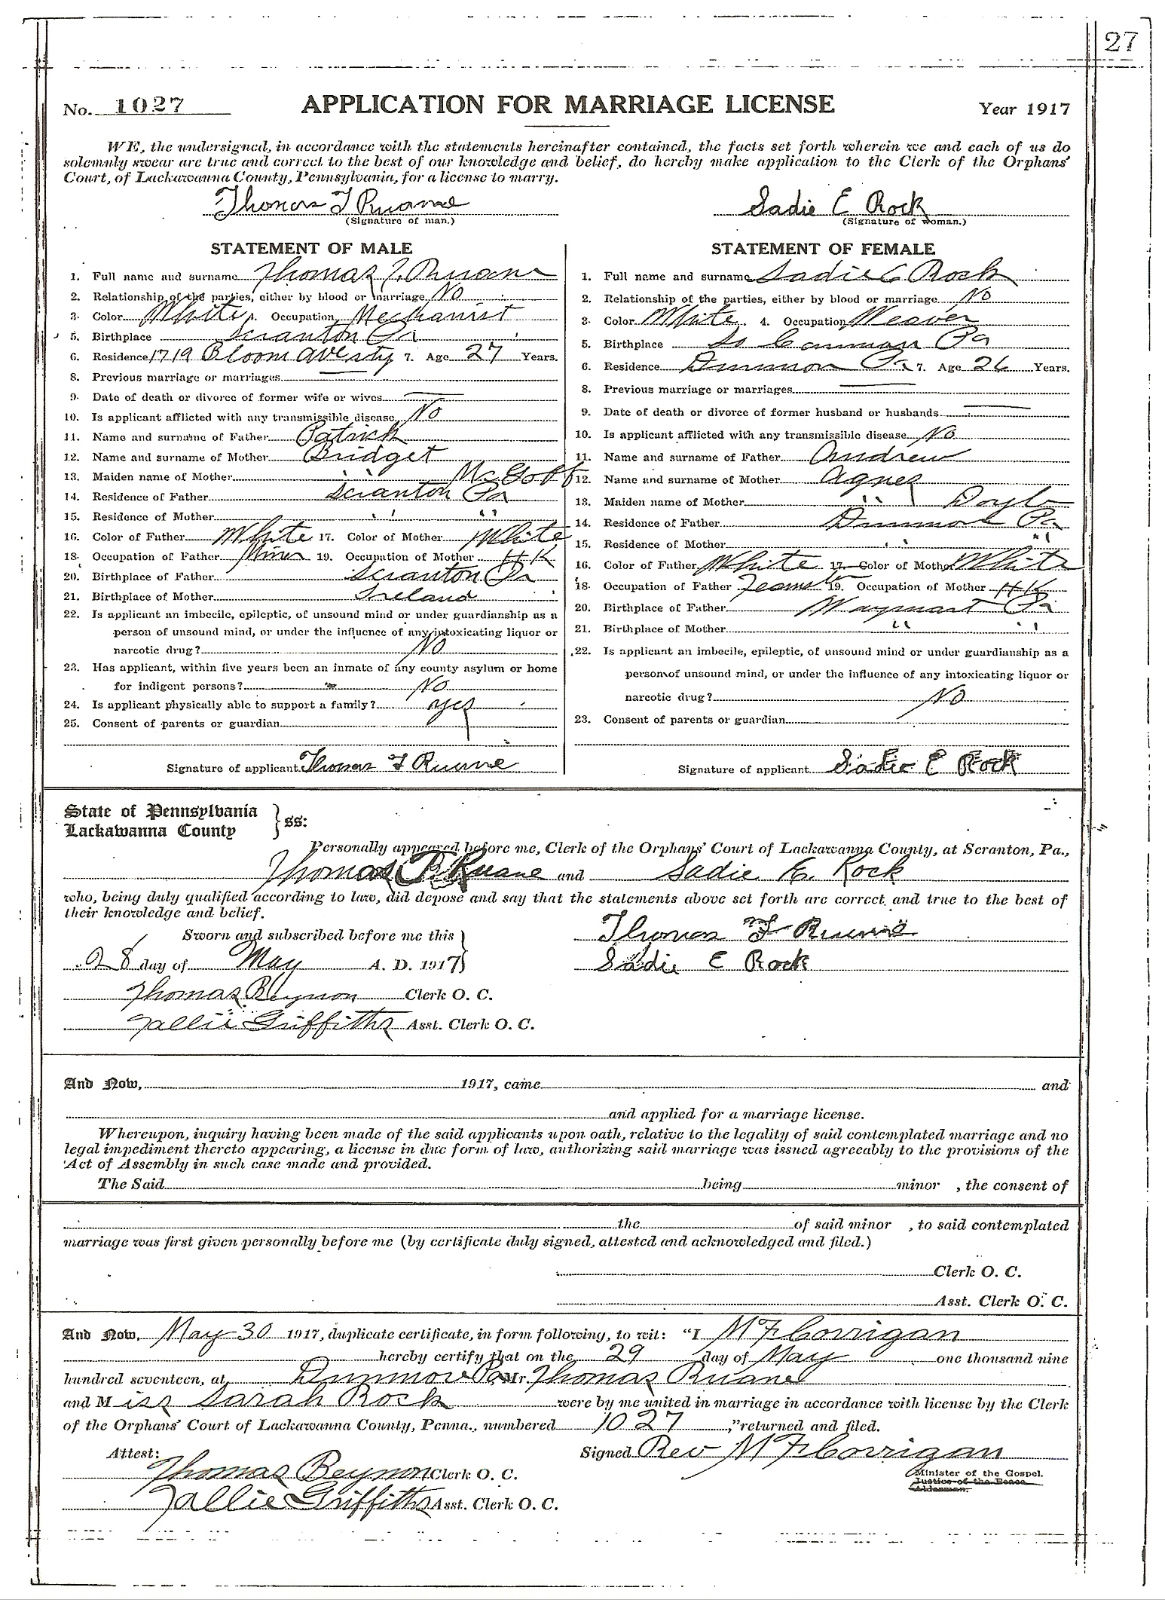 27
No. 1027 APPLICATION FOR MARRIAGE LICENSE Year 1917
WE, the undersigned, in accordance with the statements hereinafter contained, the facts set forth wherein we and each of us do
solemnly swear are true and correct to the best of our knowledge and belief, do hereby make application to the Clerk of the Orphans'
Court, of Lackawanna County, Pennsylvania, for a license to marry.
Thomas F Ruane Sadie E Rock
(Signature of man.) (Signature of woman.)
STATEMENT OF MALE
1. Full name and surname Thomas F. Ruane
2. Relationship of the parties, either by blood or marriage No
3. Color White 4. Occupation Mechanist
5. Birthplace Scranton Pa
6. Residence 1719 Bloom ave sty 7. Age 27 Years.
8. Previous marriage or marriages
9. Date of death or divorce of former wife or wives
10. Is applicant afflicted with any transmissible disease No
11. Name and surname of Father Patrick
12. Name and surname of Mother Bridget
13. Maiden name of Mother " " McGoff
14. Residence of Father Scranton Pa
15. Residence of Mother " " "
16. Color of Father White 17. Color of Mother White
18. Occupation of Father Miner 19. Occupation of Mother H.K
20. Birthplace of Father Scranton Pa
21. Birthplace of Mother Ireland
22. Is applicant an imbecile, epileptic, of unsound mind or under guardianship as a
person of unsound mind, or under the influence of any intoxicating liquor or
narcotic drug? No
23. Has applicant, within five years been an inmate of any county asylum or home
for indigent persons? No
24. Is applicant physically able to support a family? yes
25. Consent of parents or guardian
Signature of applicant Thomas F Ruane
STATEMENT OF FEMALE
1. Full name and surname Sadie E Rock
2. Relationship of the parties, either by blood or marriage No
3. Color White 4. Occupation Weaver
5. Birthplace So Canaan Pa
6. Residence Dunmore Pa 7. Age 26 Years.
8. Previous marriage or marriages
9. Date of death or divorce of former husband or husbands
10. Is applicant afflicted with any transmissible disease No
11. Name and surname of Father Andrew
12. Name and surname of Mother Agnes
13. Maiden name of Mother " Doyle
14. Residence of Father Dunmore Pa
15. Residence of Mother " " "
16. Color of Father White 17. Color of Mother White
18. Occupation of Father Teamster 19. Occupation of Mother H.K
20. Birthplace of Father Waymart Pa
21. Birthplace of Mother " "
22. Is applicant an imbecile, epileptic, of unsound mind or under guardianship as a
person of unsound mind, or under the influence of any intoxicating liquor or
narcotic drug? No
23. Consent of parents or guardian
Signature of applicant Sadie E Rock
State of Pennsylvania
Lackawanna County } ss:
Personally appeared before me, Clerk of the Orphans' Court of Lackawanna County, at Scranton, Pa.,
Thomas F Ruane and Sadie E. Rock
who, being duly qualified according to law, did depose and say that the statements above set forth are correct and true to the best of
their knowledge and belief.
Sworn and subscribed before me this } Thomas F Ruane
28 day of May A. D. 1917 Sadie E Rock
Thomas Beynon Clerk O. C.
Tallie Griffiths Asst. Clerk O. C.
And Now, 1917, came and
and applied for a marriage license.
Whereupon, inquiry having been made of the said applicants upon oath, relative to the legality of said contemplated marriage and no
legal impediment thereto appearing, a license in due form of law, authorizing said marriage was issued agreeably to the provisions of the
Act of Assembly in such case made and provided.
The Said being minor , the consent of
the of said minor , to said contemplated
marriage was first given personally before me (by certificate duly signed, attested and acknowledged and filed.)
Clerk O. C.
Asst. Clerk O. C.
And Now, May 30 1917, duplicate certificate, in form following, to wit: "I M F Corrigan
hereby certify that on the 29 day of May one thousand nine
hundred seventeen, at Dunmore Pa Mr. Thomas Ruane
and Miss Sarah Rock were by me united in marriage in accordance with license by the Clerk
of the Orphans' Court of Lackawanna County, Penna., numbered 1027 ," returned and filed.
Attest: Signed Rev M F Corrigan
Thomas Beynon Clerk O. C. Minister of the Gospel.
Justice of the Peace
Alderman.
Tallie Griffiths Asst. Clerk O. C.